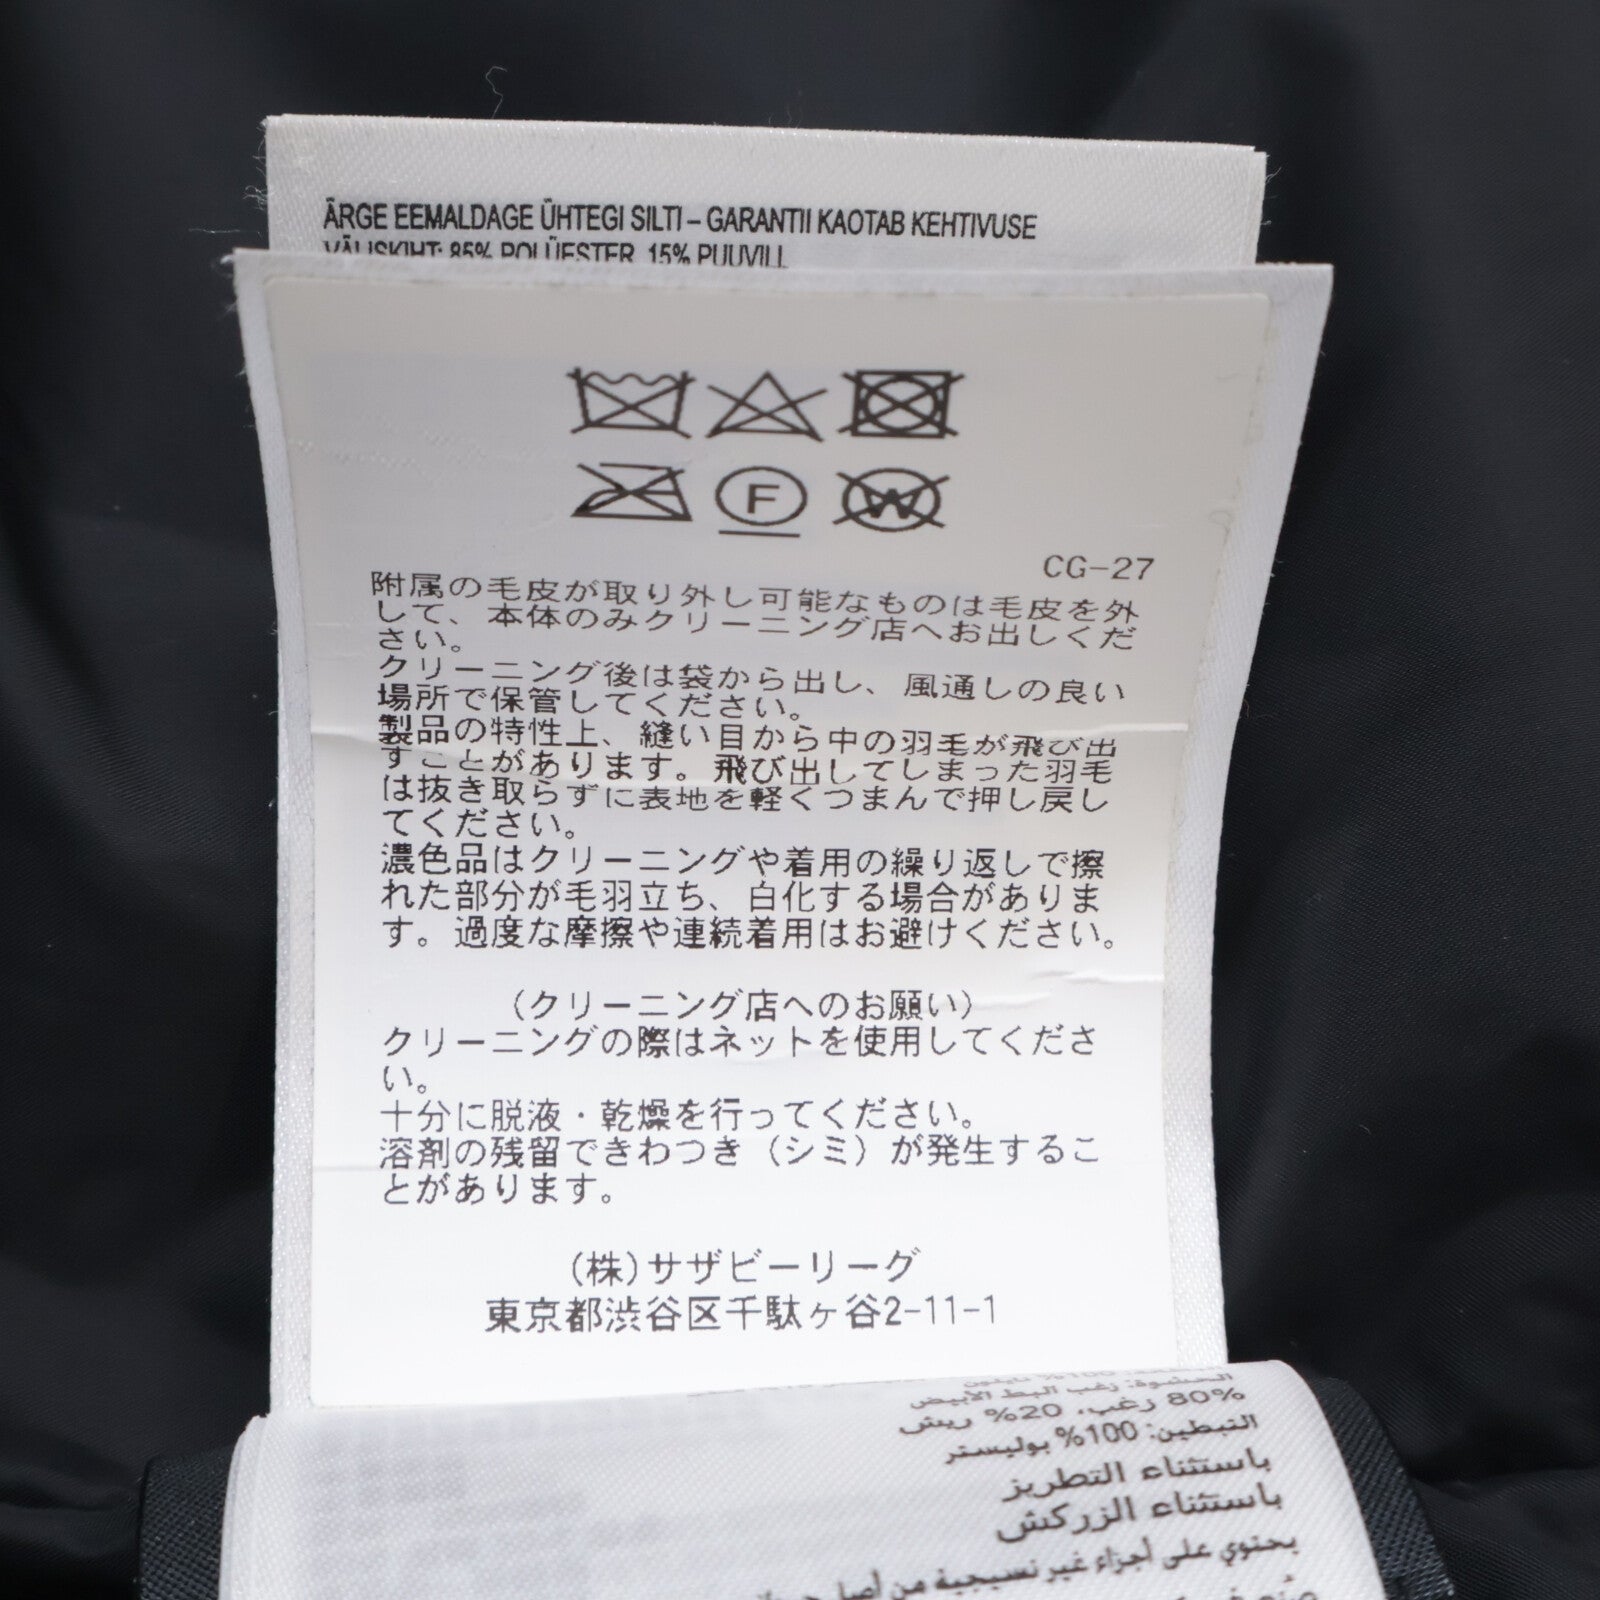 ÄRGE EEMALDAGE ÜHTEGI SILTI – GARANTII KAOTAB KEHTIVUSE
VÄLISKIHT: 85% POLÜESTER, 15% PUUVILL
F
W
CG-27
附属の毛皮が取り外し可能なものは毛皮を外
して、本体のみクリーニング店へお出しくだ
さい。
クリーニング後は袋から出し、風通しの良い
場所で保管してください。
製品の特性上、縫い目から中の羽毛が飛び出
すことがあります。飛び出してしまった羽毛
は抜き取らずに表地を軽くつまんで押し戻し
てください。
濃色品はクリーニングや着用の繰り返しで擦
れた部分が毛羽立ち、白化する場合がありま
す。過度な摩擦や連続着用はお避けください。
(クリーニング店へのお願い)
クリーニングの際はネットを使用してくださ
い。
十分に脱液・乾燥を行ってください。
溶剤の残留できわつき(シミ)が発生するこ
とがあります。
(株)サザビーリーグ
東京都渋谷区千駄ヶ谷2-11-1
الحشوة: زغب البط الأبيض
80% زغب، 20% ريش
التبطين: 100% بوليستر
باستثناء التطريز
باستثناء الزركش
يحتوي على أجزاء غير نسيجية من أصل